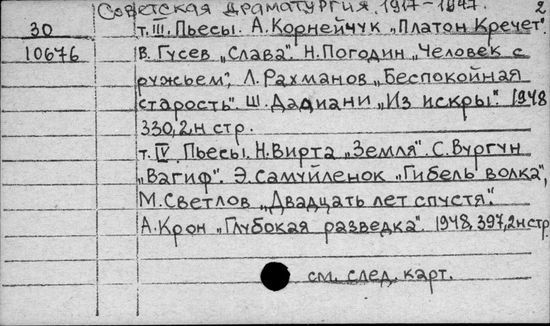 Советская драматургия 1917-1947. 2
30 т. III. Пьесы. А. Корнейчук „Платон Кречет".
10676 В. Гусев „Слава". Н. Погодин „Человек с
ружьем", Л. Рахманов „Беспокойная
старость". Ш. Дадиани „Из искры". 1948
330, 2н стр.
т. IV Пьесы. Н. Вирта „Земля". С. Вургун
„Вагиф". Э. Самуйленок „Гибель волка",
М. Светлов „Двадцать лет спустя".
А. Крон „Глубокая разведка". 1948, 397, 2н стр
см. след. карт.